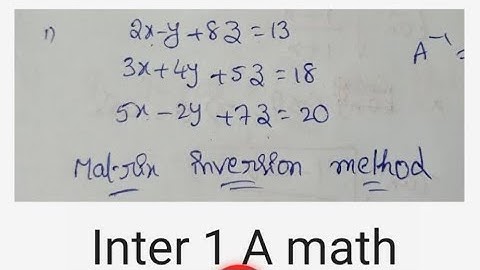 1) 2x-y+8z=13
A⁻¹=
3x+4y+5z=18
5x-2y+7z=20
Matrix inversion method
Inter 1 A math